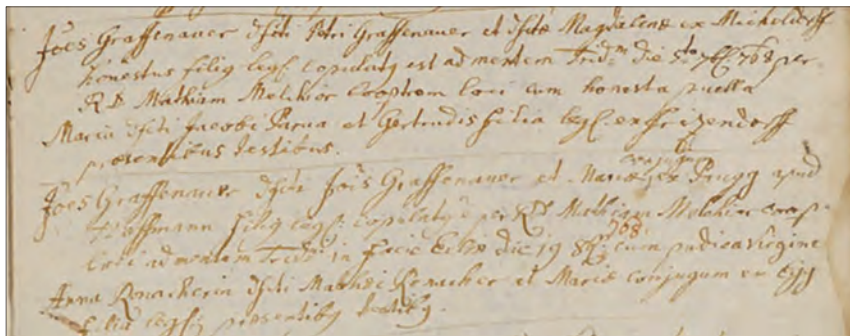 Jōes Graffenauer dfcti Petri Graffenauer et dfctæ Magdalenæ ex Micheldorff
honestus filig legl. copulatg est ad mentem Trid. die 768 per
R.D. Mathiam Melchior Cooprem loci cum honesta puella
Maria dfcti Jacobi Parva et Gertrudis filia legl. ex Frizendorff
præsentibus testibus.
conjugum
Jōes Graffenauer dfcti Jōis Graffenauer et Mariæ ex Brugg apud
filig legl: copulatg e per R.D. Mathiam Melchior Coop.
708
loci ad mentem Trid: in facie Ecclæ die 19 cum pudica virgine
Anna Ronacherin dfcti Mathei Ronacher et Mariæ conjugum ex Egg
filia legl. præsentibg testibg.